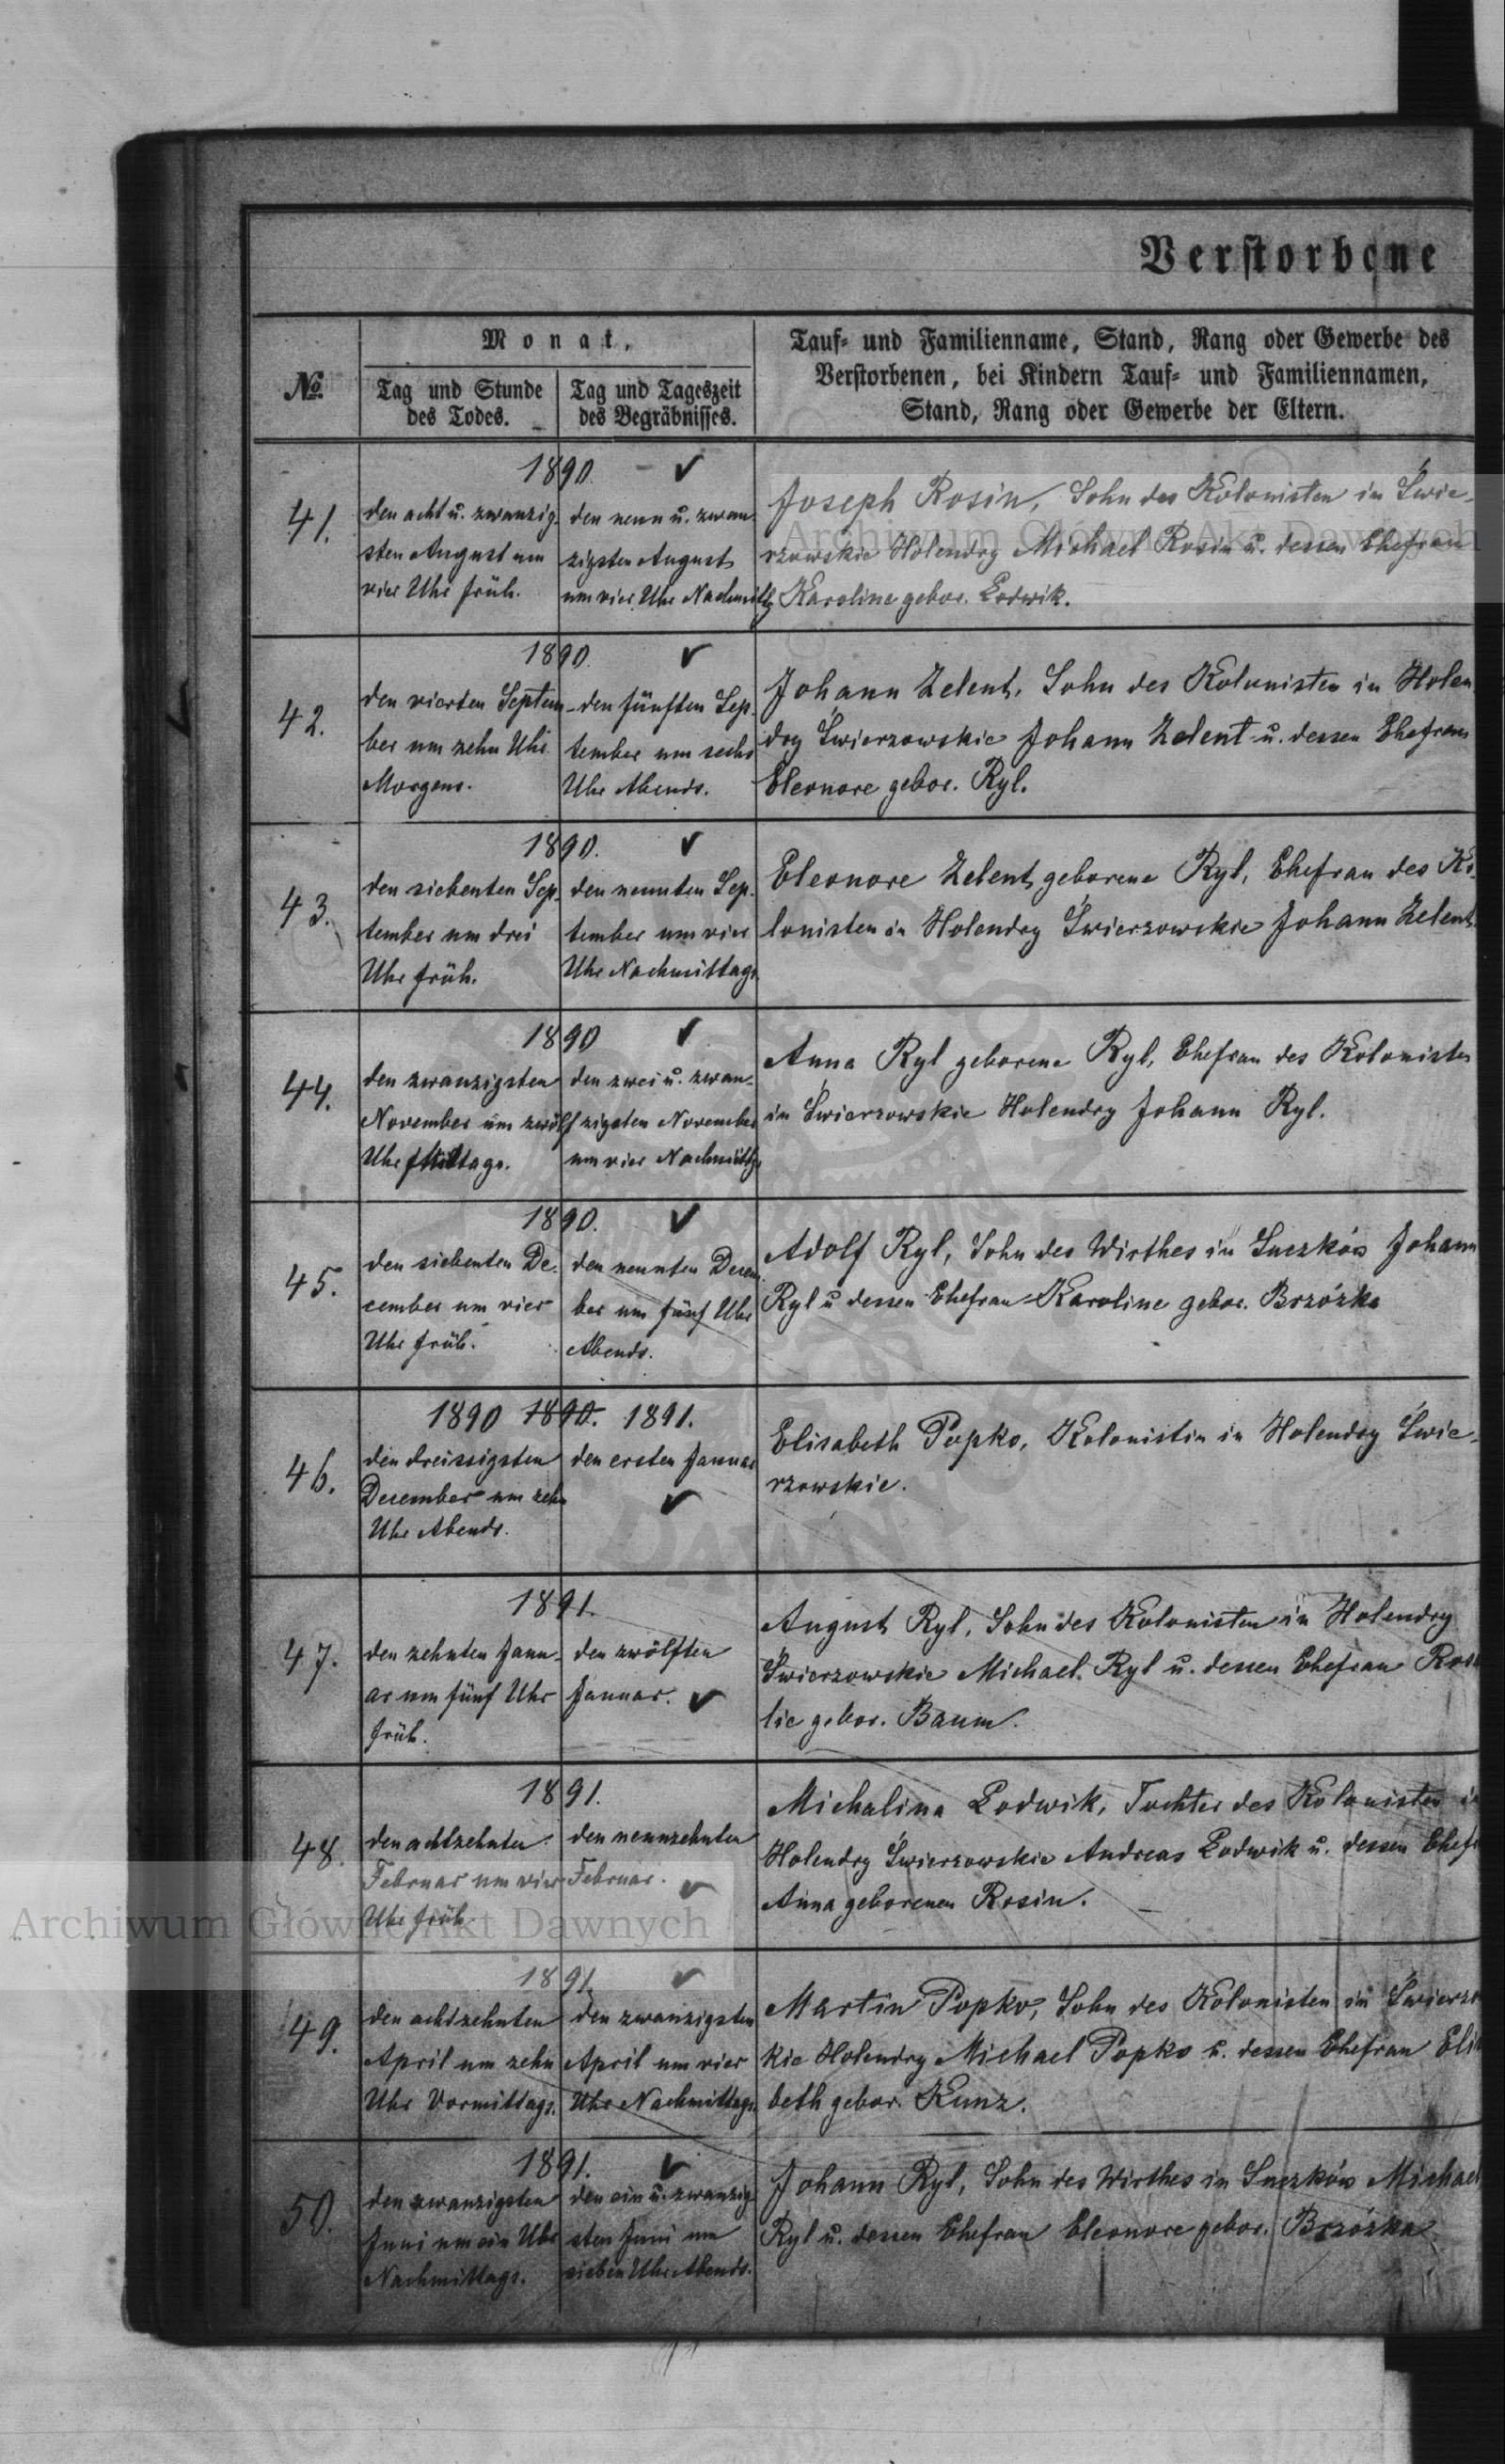 Verstorbene
№
Monat,
Tag und Stunde
des Todes.
Tag und Tageszeit
des Begräbnisses.
Tauf- und Familienname, Stand, Rang oder Gewerbe des
Verstorbenen, bei Kindern Tauf- und Familiennamen,
Stand, Rang oder Gewerbe der Eltern.
41.
1890.
den acht u. zwanzig-
sten August um
vier Uhr früh.
den neun u. zwan
zigsten August
um vier Uhr Nachmittg
Joseph Rosin, Sohn des Kolonisten in Świe-
rzowskie Holendry Michael Rosin u. dessen Ehefrau
Karoline gebor. Lodwik.
Archiwum Główne Akt Dawnych
42.
1890.
den vierten Septem-
ber um zehn Uhr
Morgens.
den fünften Sep-
tember um sechs
Uhr Abends.
Johann Zelent, Sohn des Kolonisten in Holen
dry Świerzowskie Johann Zelent u. dessen Ehefrau
Eleonore gebor. Ryl.
43.
1890.
den siebenten Sep-
tember um drei
Uhr früh.
den neunten Sep-
tember um vier
Uhr Nachmittags.
Eleonore Zelent geborene Ryl, Ehefrau des Ko-
lonisten in Holendry Świerzowskie Johann Zelent.
44.
1890
den zwanzigsten
November um zwölf
Uhr Mittags.
den zwei u. zwan-
zigsten November
um vier Nachmittg
Anna Ryl geborene Ryl, Ehefrau des Kolonisten
in Świerzowskie Holendry Johann Ryl.
45.
1890.
den siebenten De-
cember um vier
Uhr früh.
den neunten Decem
ber um fünf Uhr
Abends.
Adolf Ryl, Sohn des Wirthes in Luczków Johann
Ryl u dessen Ehefrau Karoline gebor. Brzózka
46.
1890 1890. 1891.
den dreissigsten
December um zehn
Uhr Abends.
den ersten Januar
Elisabeth Popko, Kolonistin in Holendry Świe-
rzowskie.
47.
1891.
den zehnten Janu-
ar um fünf Uhr
früh.
den zwölften
Januar.
August Ryl, Sohn des Kolonisten in Holendry
Świerzowskie Michael Ryl u. dessen Ehefrau Rosa
lie gebor. Baum.
48.
1891.
den achtzehnten
Februar um vier
Uhr früh
den neunzehnten
Februar.
Michalina Lodwik, Tochter des Kolonisten in
Holendry Świerzowskie Andreas Lodwik u. dessen Ehefr
Anna geborenen Rosin.
Archiwum Główne Akt Dawnych
49.
1891.
den achtzehnten
April um zehn
Uhr Vormittags.
den zwanzigsten
April um vier
Uhr Nachmittags.
Martin Popko, Sohn des Kolonisten in Świerzo
kie Holendry Michael Popko u. dessen Ehefrau Elis
beth gebor. Kunz.
50.
1891.
den zwanzigsten
Juni um ein Uhr
Nachmittags.
den ein u. zwanzig-
sten Juni um
sieben Uhr Abends.
Johann Ryl, Sohn des Wirthes in Luczków Michael
Ryl u. dessen Ehefrau Eleonore gebor. Brzózka